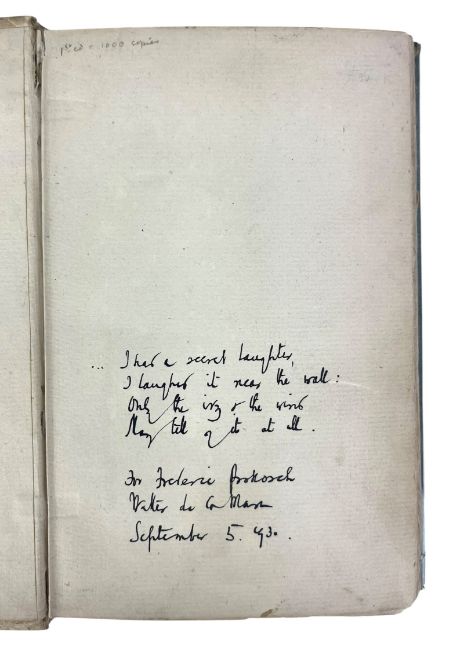 1st ed = 1000 copies
... I had a secret laughter,
I laughed it near the wall:
Only the ivy & the wind
May tell of it at all.
For Frederic Prokosch
Walter de la Mare
September 5.